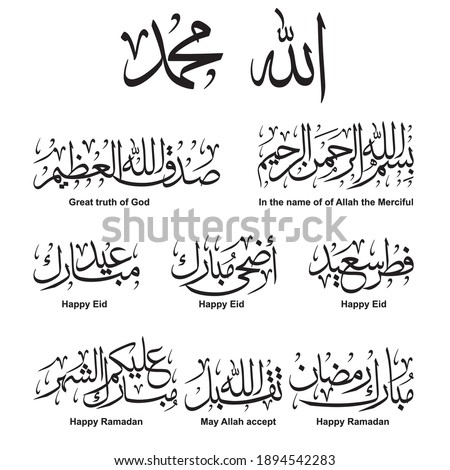 الله محمد
بسم الله الرحمن الرحيم صدق الله العظيم
In the name of of Allah the Merciful Great truth of God
فطر سعيد أضحى مبارك عيد مبارك
Happy Eid Happy Eid Happy Eid
مبارك رمضان تقبل الله مبارك عليكم الشهر
Happy Ramadan May Allah accept Happy Ramadan
shutterstock
shutterstock
IMAGE ID: 1894542283
www.shutterstock.com